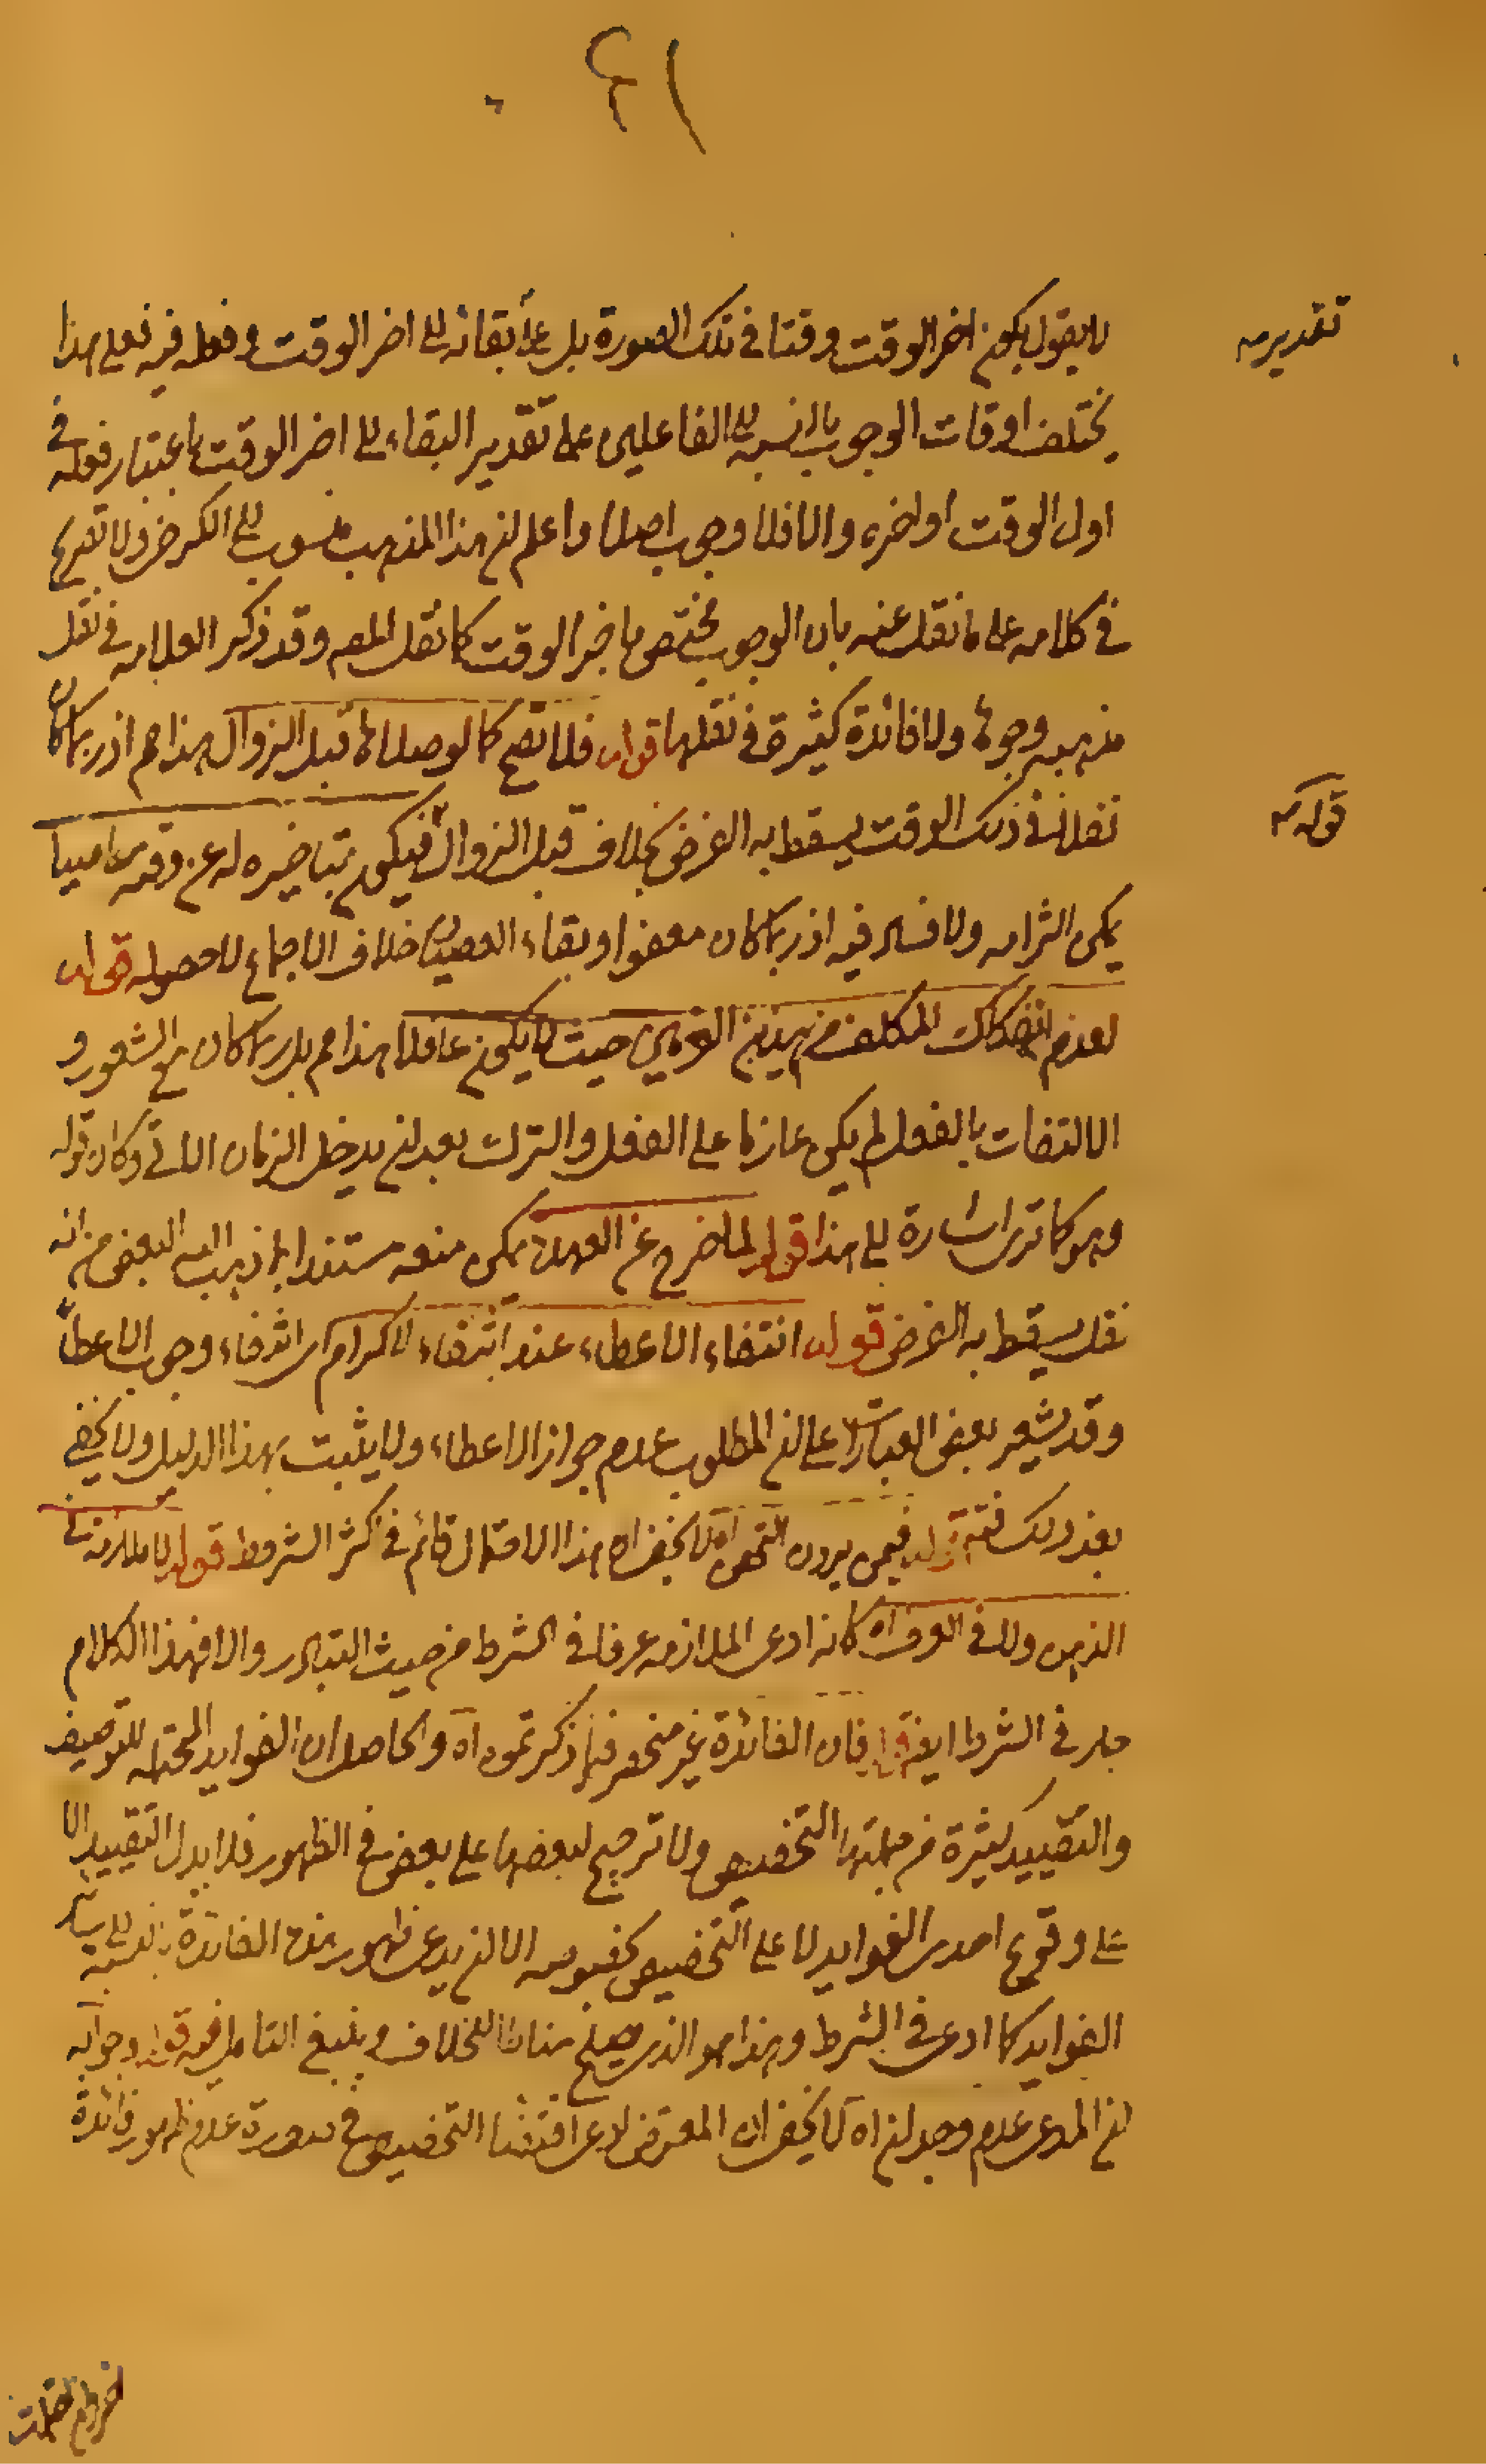 ٤١
لا يقول بكون اخر الوقت وقتا في تلك الصورة بل على بقائه الى اخر الوقت وفعله فيه فعلى هذا
تقدير
يختلف اوقات الوجوب بالنسبة الى الفاعلين على تقدير البقاء الى اخر الوقت باعتبار فعله في
اول الوقت او اخره والا فلا وجوب اصلا واعلم ان هذا المذهب منسوب الى الكرخي ولا تصريح
في كلامه على ما نقل عنه بان الوجوب مختص باخر الوقت كما نقل المص وقد ذكر العلامه في نقل
مذهبه وجوها ولا فائدة كثيرة في نقلها قوله فلا تصح كما لو صلاها قبل الزوال هذا مم اذ ربما كان
نفلا في ذلك الوقت يسقط به الفرض بخلاف قبل الزوال قوله فيكون بتاخيره له عن وقته عاصيا
قوله
يمكن التزامه ولا فساد فيه اذ ربما كان معفوا وبقاء العصيان خلاف الاجماع لا حصوله قوله
لعدم انفكاك المكلف من هذين العزمين حيث لا يكون غافلا هذا مم بل ربما كان مع الشعور و
الالتفات بالفعل لم يكن عازما على الفعل والترك بعد ان يدخل الزمان الاتي وكان قوله
وهو كما ترى اشارة الى هذا قوله لما خرج عن العهدة يمكن منعه مستندا بما ذهب اليه البعض من انه
نفل يسقط به الفرض قوله انتفاء الاعطاء عند انتفاء الاكرام اى انتفاء وجوب الاعطاء
وقد يشعر بعض العبارات على ان المطلوب عدم جواز الاعطاء ولا يثبت بهذا الدليل ولا يخفى
بعد ذلك قوله فيمن يردن التحصن اه لا يخفى ان هذا الاحتمال قائم في اكثر الشروط قوله لا ملازمة في
الذهن ولا في العرف اه كانه ادعى الملازمه عرفا في الشرط من حيث التبادر والا فهذا الكلام
جار في الشرط ايضا قوله فان الفائدة غير منحصر فيما ذكرتموه اه والحاصل ان الفوايد المحتمله للتوصيف
والتقييد كثيرة من جملتها التخصيص ولا ترجيح لبعضها على بعض في الظهور فلا يدل التقييد الا
على وقوع احدى الفوايد لا على التخصيص بخصوصه الا ان يدعى ظهور هذه الفائدة بالنسبة الى سائر
الفوايد كما ادعى في الشرط وهذا هو الذي يصلح مناطا للخلاف وينبغي التامل فيه قوله وجوابه
ان المدعى عدم وجدان اه لا يخفى ان المعترض ادعى اقتضاء التخصيص في صورة عدم ظهور فائدة